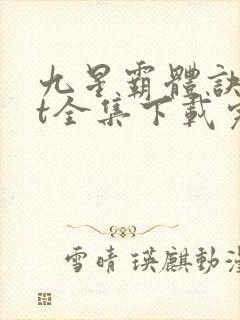 九星霸體訣
t全集下載
雪晴 瑛麒動漫